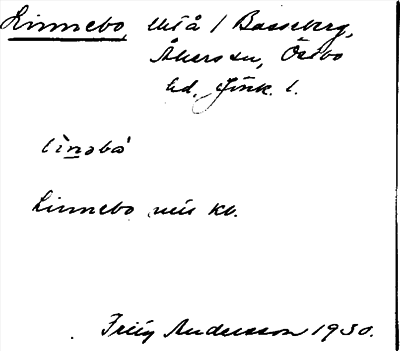 Linnebo, utå / Basseberg,
Åkers sn, Östbo
hd, Jönk. l.
lìnəbò
Linnebo
kb.
Andersson 1930.